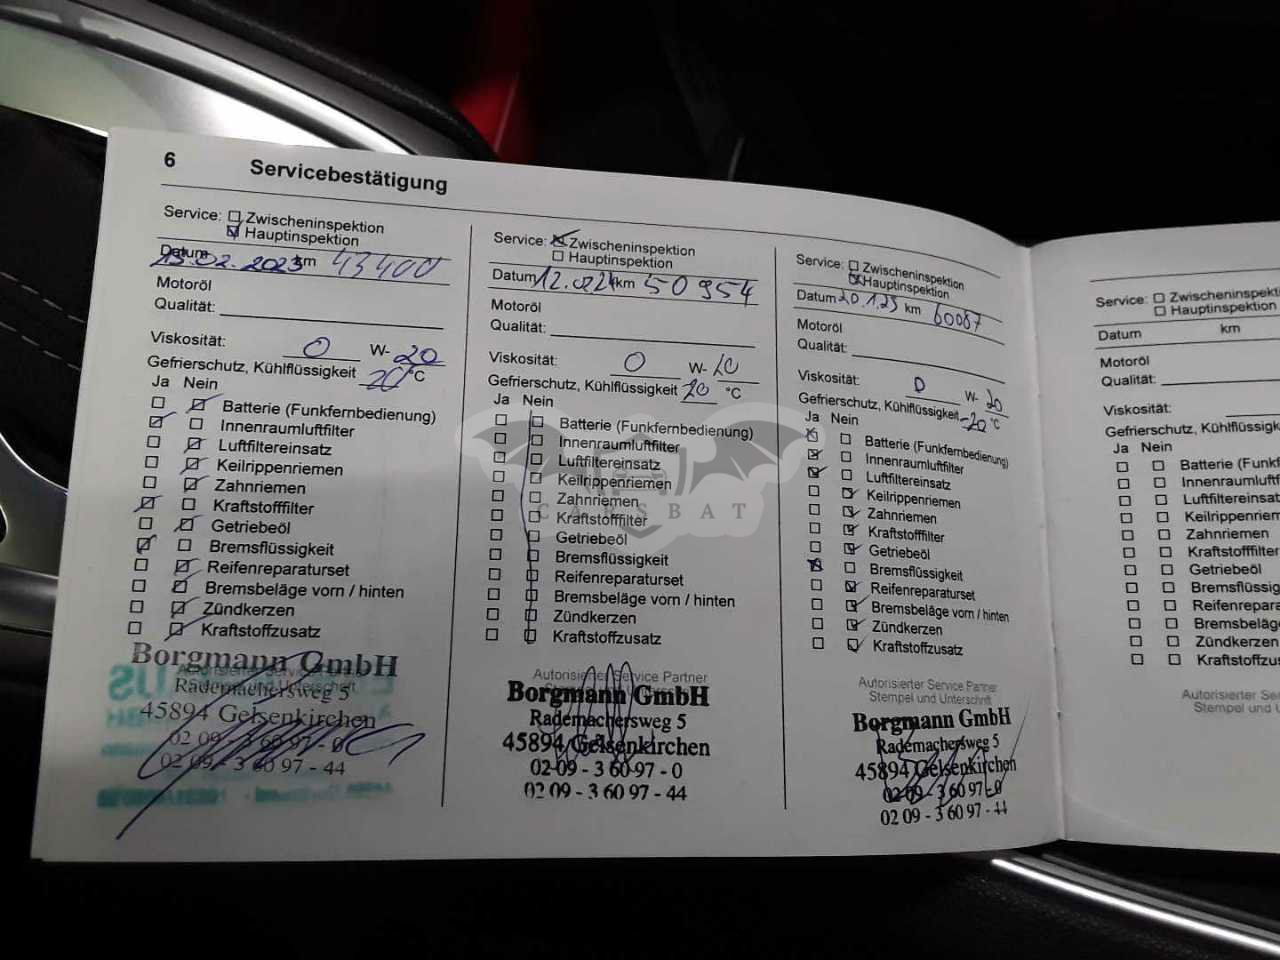 6 Servicebestätigung
Service: Zwischeninspektion
Hauptinspektion
Datum 15.02.2023 km 43400
Motoröl
Qualität:
Viskosität: 0 W- 20
Gefrierschutz, Kühlflüssigkeit 20 °C
Ja Nein
Batterie (Funkfernbedienung)
Innenraumluftfilter
Luftfiltereinsatz
Keilrippenriemen
Zahnriemen
Kraftstofffilter
Getriebeöl
Bremsflüssigkeit
Reifenreparaturset
Bremsbeläge vorn / hinten
Zündkerzen
Kraftstoffzusatz
Autorisierter Service Partner
Stempel und Unterschrift
Borgmann GmbH
Rademachersweg 5
45894 Gelsenkirchen
02 09 - 3 60 97 - 0
02 09 - 3 60 97 - 44
Service: Zwischeninspektion
Hauptinspektion
Datum km 50954
Motoröl
Qualität:
Viskosität: 0 W- 20
Gefrierschutz, Kühlflüssigkeit 20 °C
Ja Nein
Batterie (Funkfernbedienung)
Innenraumluftfilter
Luftfiltereinsatz
Keilrippenriemen
Zahnriemen
Kraftstofffilter
Getriebeöl
Bremsflüssigkeit
Reifenreparaturset
Bremsbeläge vorn / hinten
Zündkerzen
Kraftstoffzusatz
Autorisierter Service Partner
Borgmann GmbH
Rademachersweg 5
45894 Gelsenkirchen
02 09 - 3 60 97 - 0
02 09 - 3 60 97 - 44
Service: Zwischeninspektion
Hauptinspektion
Datum km 60087
Motoröl
Qualität:
Viskosität: 0 W- 20
Gefrierschutz, Kühlflüssigkeit -20 °C
Ja Nein
Batterie (Funkfernbedienung)
Innenraumluftfilter
Luftfiltereinsatz
Keilrippenriemen
Zahnriemen
Kraftstofffilter
Getriebeöl
Bremsflüssigkeit
Reifenreparaturset
Bremsbeläge vorn / hinten
Zündkerzen
Kraftstoffzusatz
Autorisierter Service Partner
Stempel und Unterschrift
Borgmann GmbH
Rademachersweg 5
45894 Gelsenkirchen
02 09 - 3 60 97 - 0
02 09 - 3 60 97 - 44
Service: Zwischeninspekti
Hauptinspektion
Datum km
Motoröl
Qualität:
Viskosität:
Gefrierschutz, Kühlflüssigk
Ja Nein
Batterie (Funkf
Innenraumluftf
Luftfiltereinsat
Keilrippenriem
Zahnriemen
Kraftstofffilter
Getriebeöl
Bremsflüssig
Reifenrepara
Bremsbeläg
Zündkerzen
Kraftstoffzus
Autorisierter Se
Stempel und U
CARSBAT